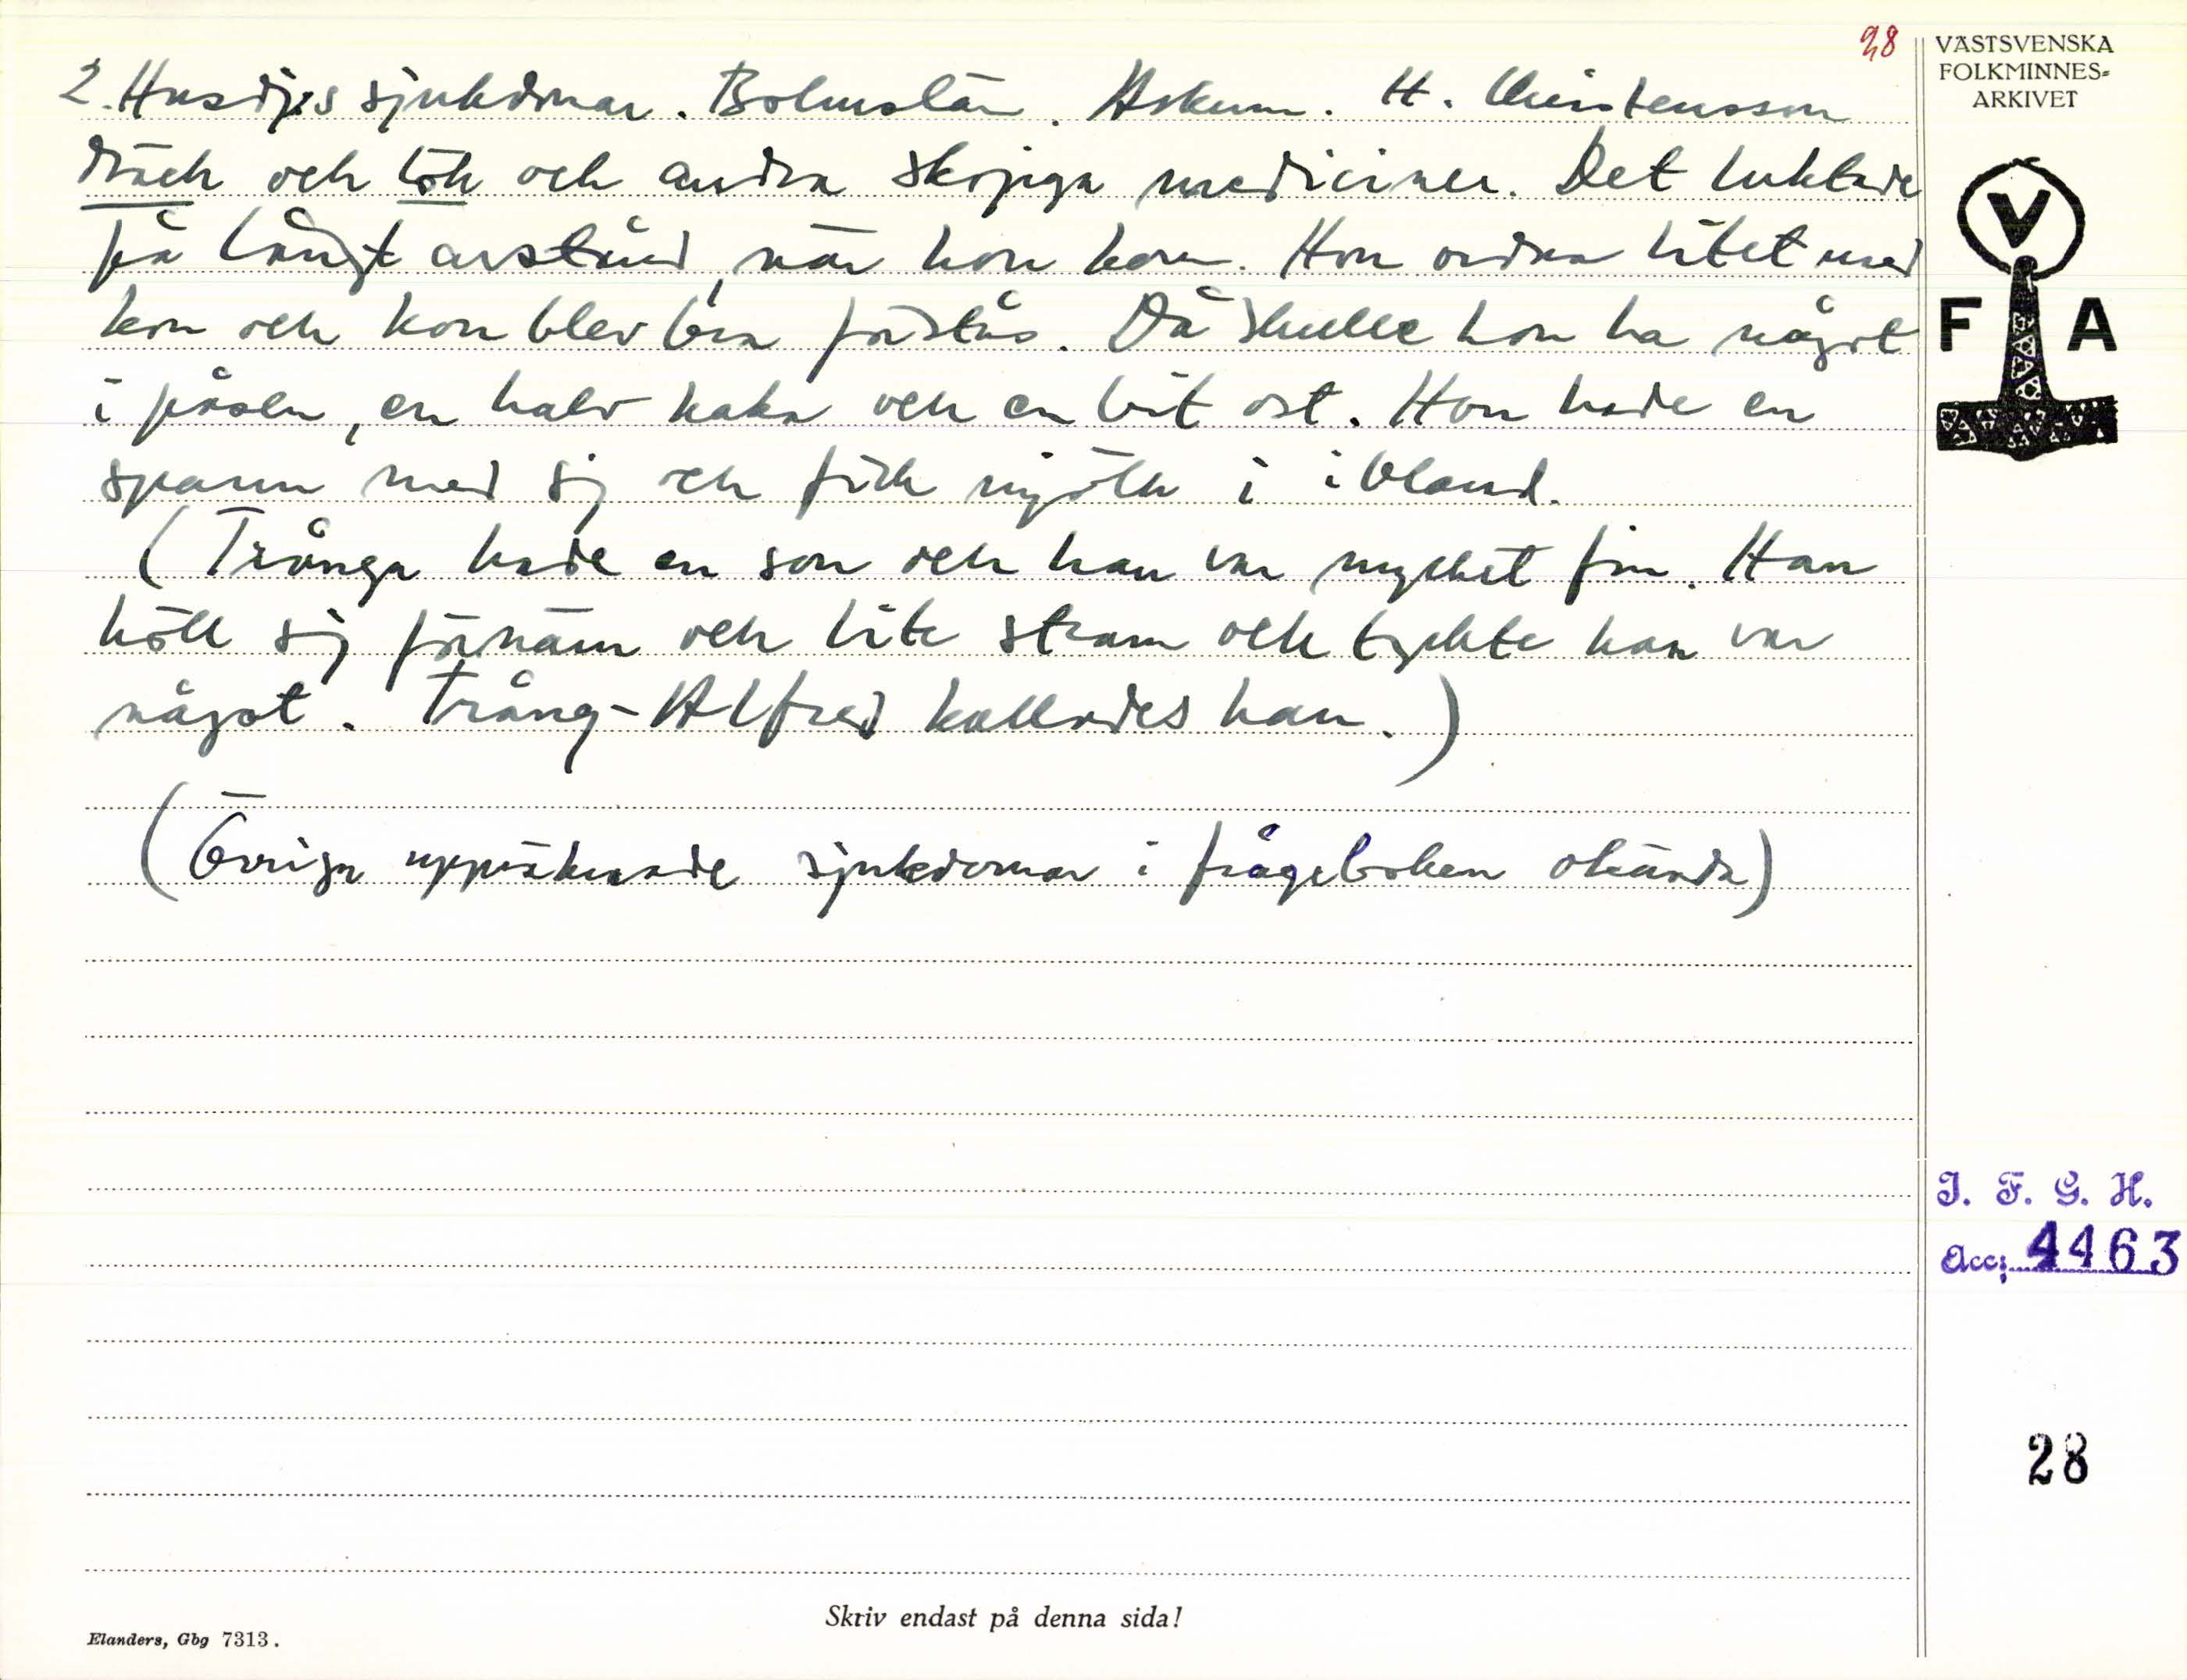 28
VÄSTSVENSKA
FOLKMINNES-
ARKIVET
2. Husdjurs sjukdomar. Bohuslän. Askum. H. Christensson
dräck och lök och andra skojiga mediciner. Det luktade
på långt avstånd, när hon kom. Hon ordna litet med
kon och kon blev bra förstås. Då skulle hon ha något
i påsen, en halv kaka och en bit ost. Hon hade en
spann med sig och fick mjölk i ibland.
(Trånga hade en son och han var mycket fin. Han
höll sig förnäm och lite stram och tyckte han var
något. Trång-Alfred kallades han.)
(Övriga uppräknade sjukdomar i frågeboken okända)
V
F A
I. F. G. H.
Acc: 4463
28
Skriv endast på denna sida!
Elanders, Gbg 7313.